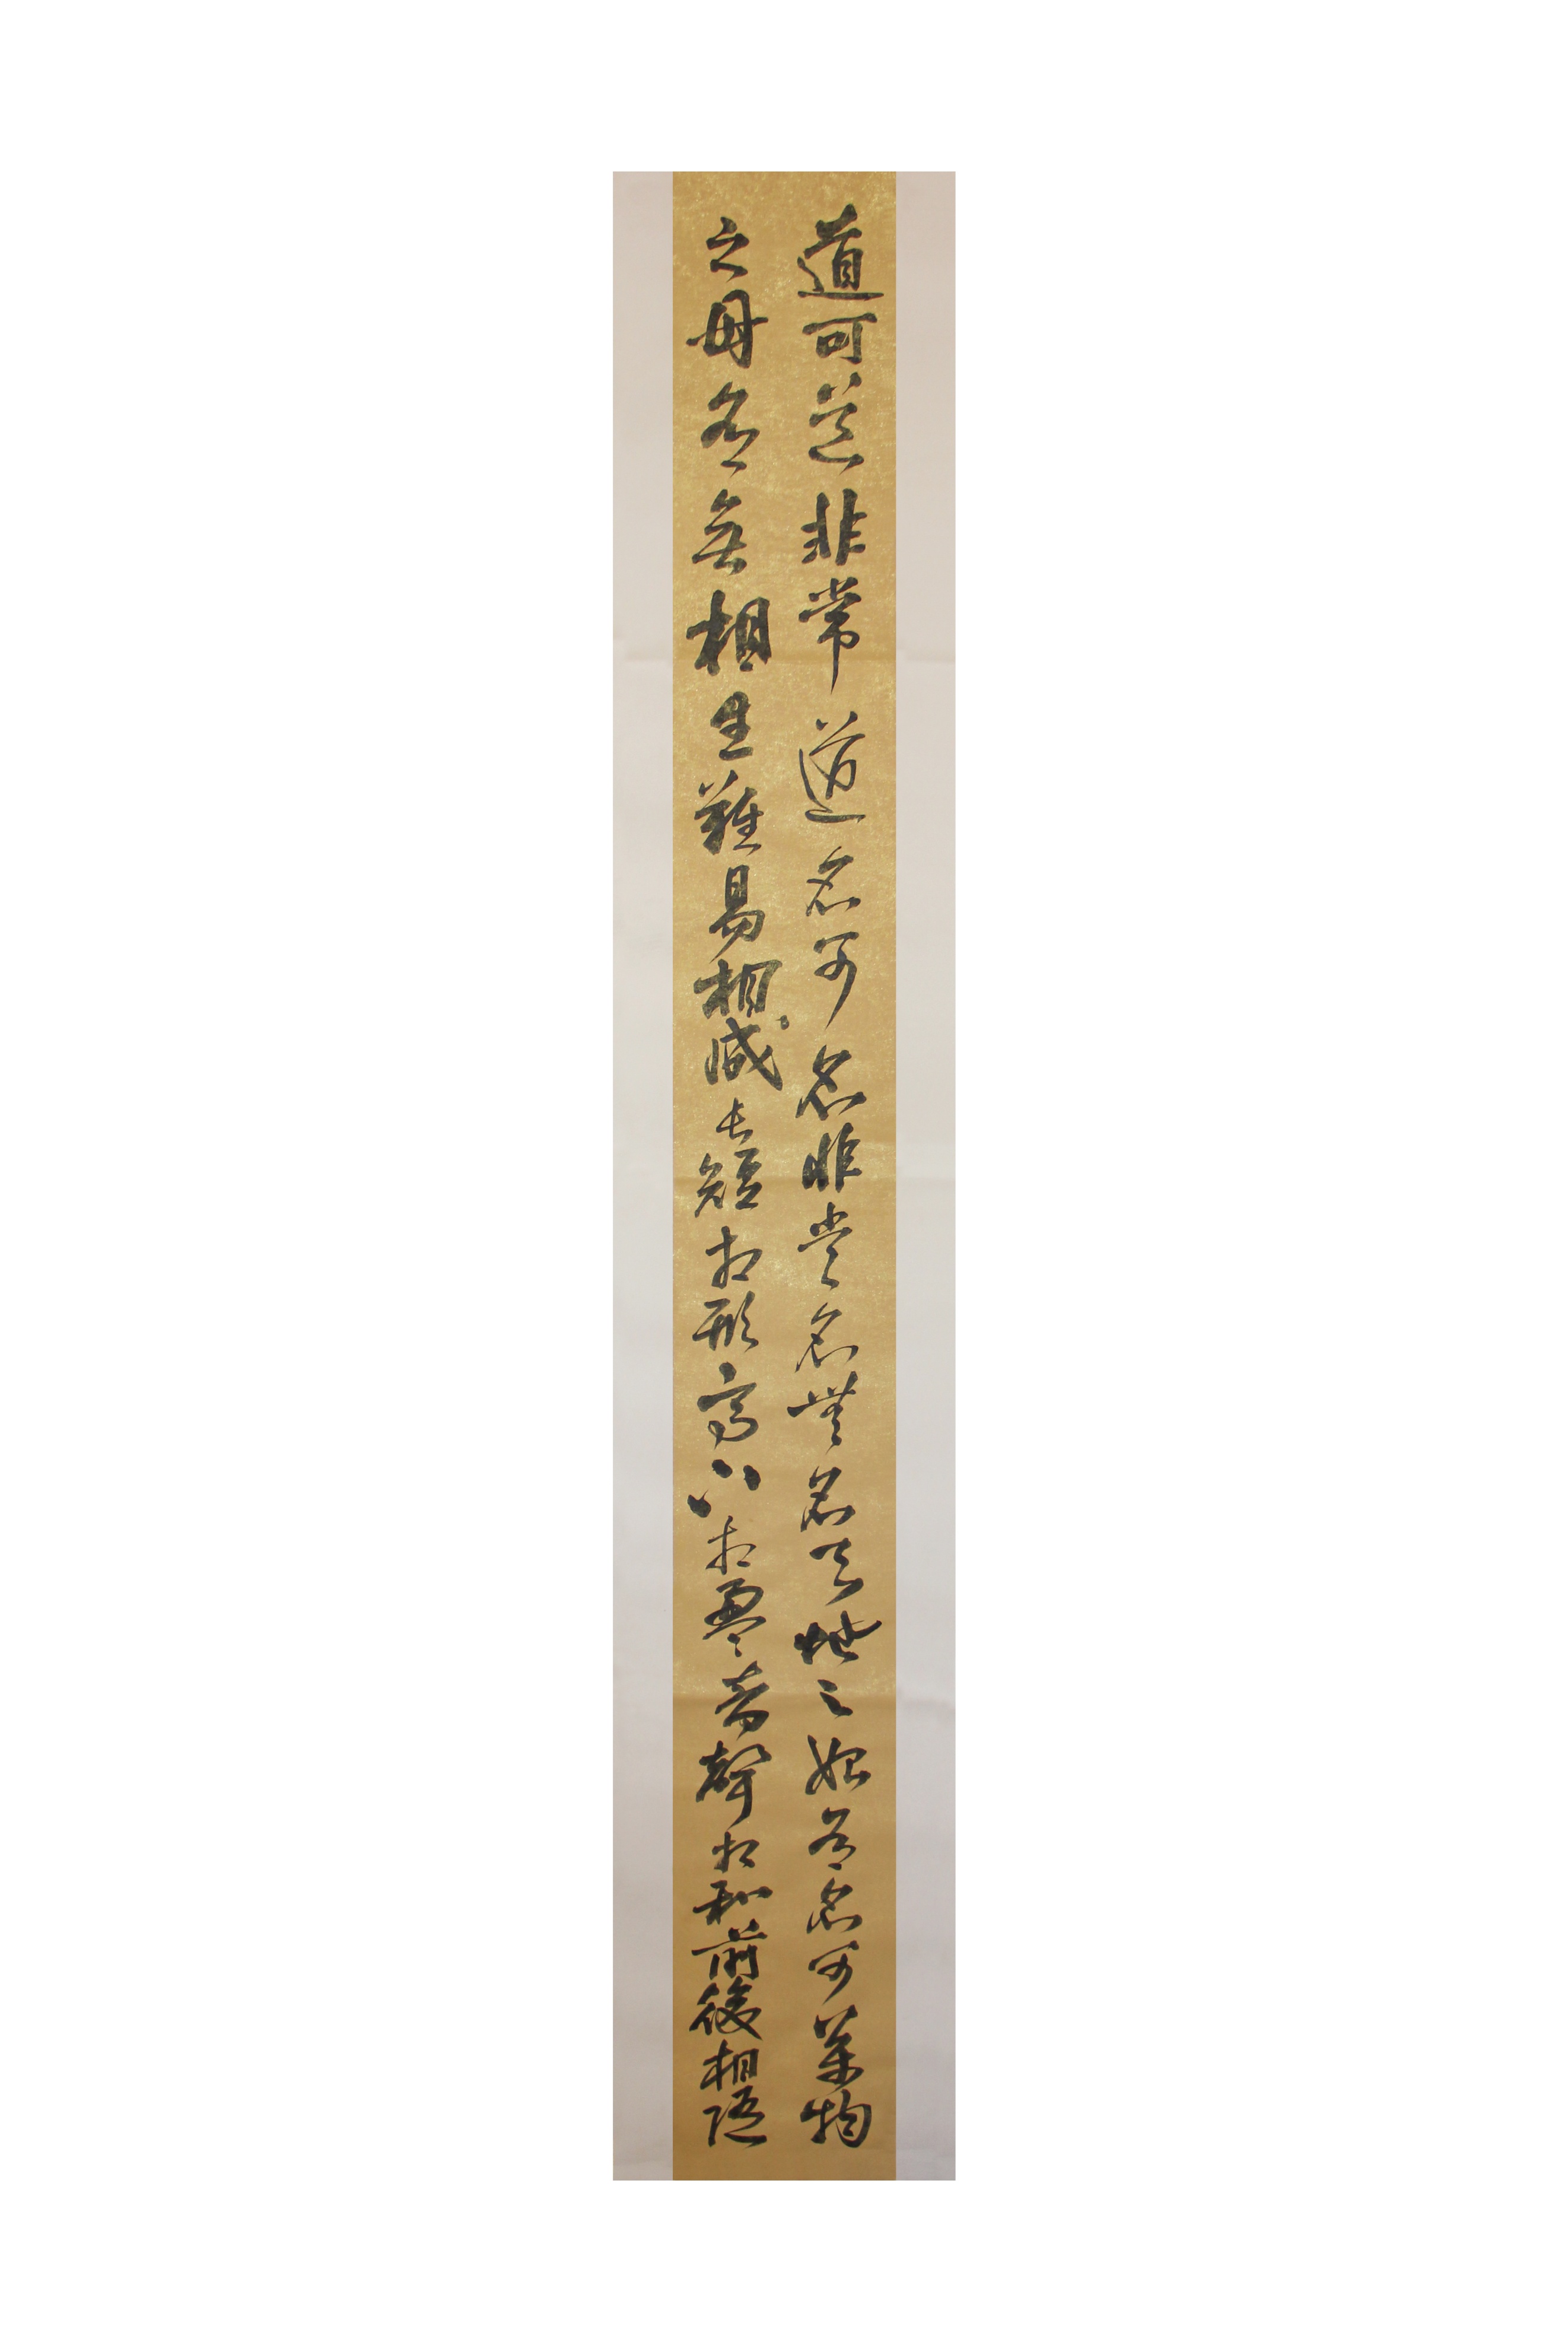 道可道非常道名可名非常名無名天地之始有名可萬物
之母有無相生難易相成長短相形高下相盈音聲相和前後相随